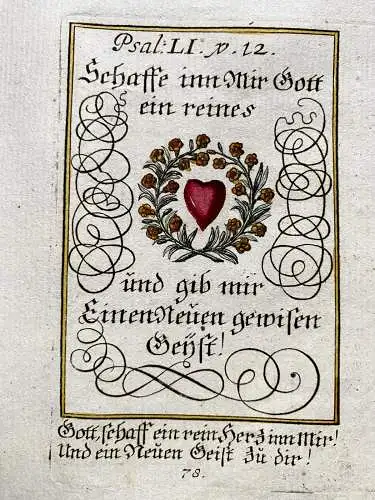 Psal: LI. v. 12.
Schaffe inn Mir Gott
ein reines
und gib mir
Einen Neüen gewisen
Geÿst!
Gott, schaff ein rein Herz inn Mir!
Und ein Neuen Geist zu dir!
78.